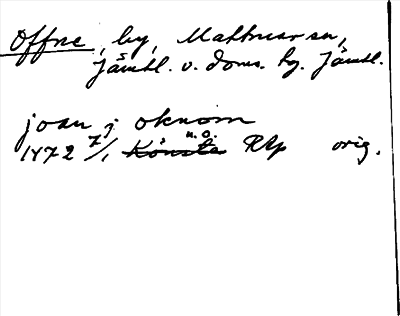 Offne, by, Mattmar sn,
Jämtl. v. doms. hg. Jämtl.
joan j oknom
1472 7/1 n.o. RAp orig.